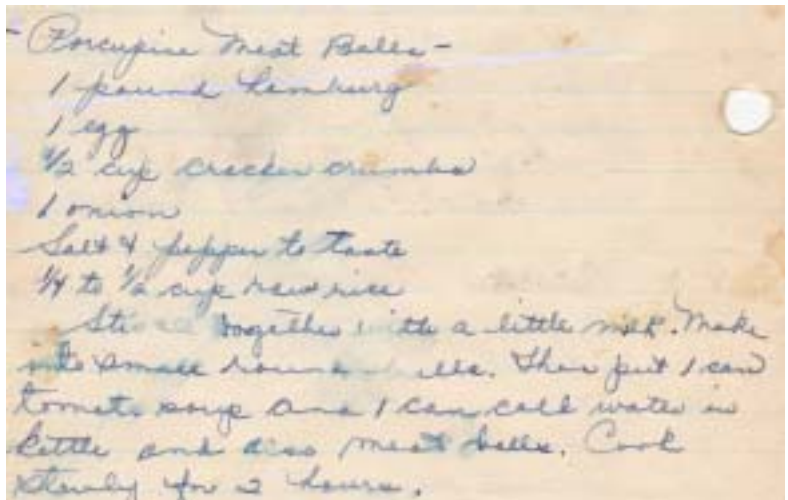 - Porcupine Meat Balls -
1 pound hamburg
1 egg
1/2 cup cracker crumbs
1 onion
Salt & pepper to taste
1/4 to 1/2 cup raw rice
Stir all together with a little milk. Make
into small round balls. Then put 1 can
tomato soup and 1 can cold water in
kettle and also meat balls. Cook
slowly for 2 hours.